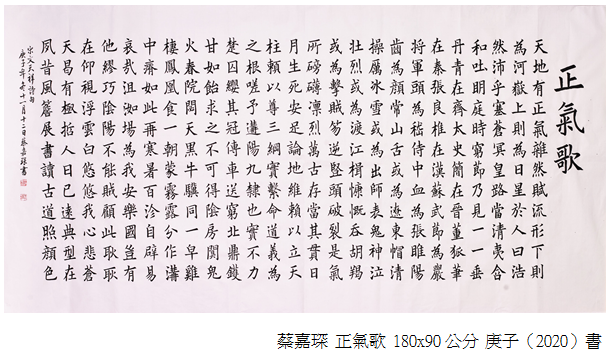 正氣歌
天地有正氣雜然賦流形下則
為河嶽上則為日星於人曰浩
然沛乎塞蒼冥皇路當清夷含
和吐明庭時窮節乃見一一垂
丹青在齊太史簡在晉董狐筆
在秦張良椎在漢蘇武節為嚴
將軍頭為嵇侍中血為張睢陽
齒為顏常山舌或為遼東帽清
操厲冰雪或為出師表鬼神泣
壯烈或為渡江楫慷慨吞胡羯
或為擊賊笏逆豎頭破裂是氣
所磅礴凜烈萬古存當其貫日
月生死安足論地維賴以立天
柱賴以尊三綱實繫命道義為
之根嗟予遘陽九隸也實不力
楚囚纓其冠傳車送窮北鼎鑊
甘如飴求之不可得陰房闃鬼
火春院閟天黑牛驥同一皁雞
棲鳳凰食一朝蒙霧露分作溝
中瘠如此再寒暑百沴自辟易
哀哉沮洳場為我安樂國豈有
他繆巧陰陽不能賊顧此耿耿
在仰視浮雲白悠悠我心悲蒼
天曷有極哲人日已遠典型在
夙昔風簷展書讀古道照顏色
宋文天祥詩句
庚子年冬十一月十二日蔡嘉琛書
蔡嘉琛 正氣歌 180x90公分 庚子(2020)書